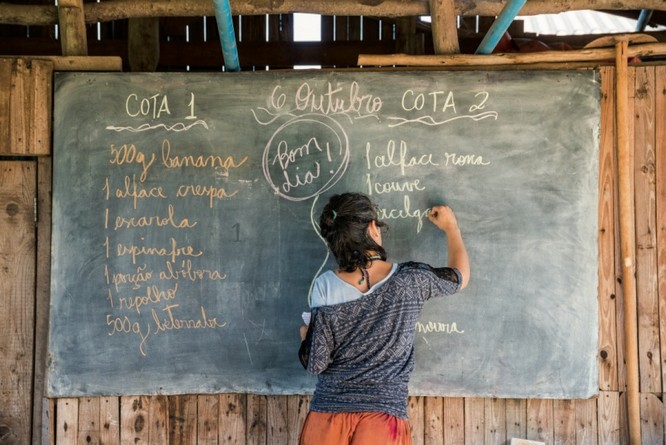 COTA 1
500g banana
1 alface crespa
1 escarola
1 espinafre
1 porção abóbora
1 repolho
500g beterraba
6 Outubro
Bom
dia!
COTA 2
1 alface roxa
1 couve
acelga